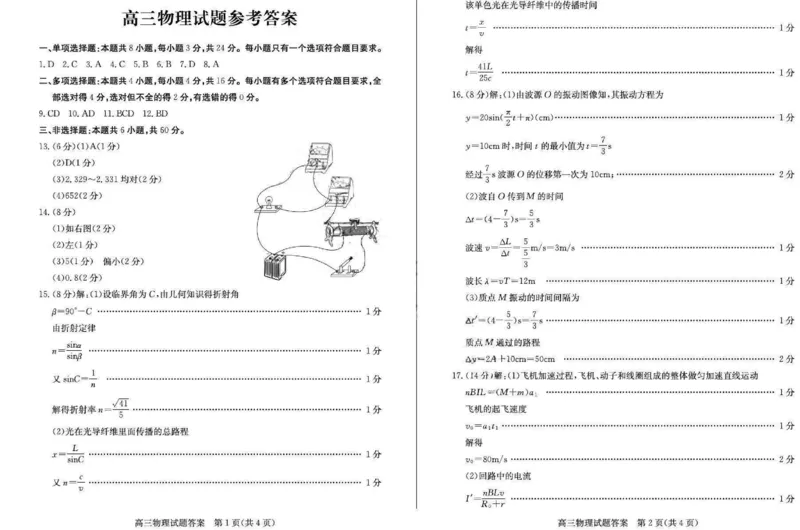 高三物理试题参考答案
一、单项选择题:本题共8小题,每小题3分,共24分。每小题只有一个选项符合题目要求。
1. D 2. C 3. A 4. C 5. B 6. B 7. D 8. A
二、多项选择题:本题共4小题,每小题4分,共16分。每小题有多个选项符合题目要求,全
部选对得4分,选对但不全的得2分,有选错的得0分。
9. CD 10. AD 11. BCD 12. BD
三、非选择题:本题共6小题,共60分。
13. (6分)(1)A(1分)
(2)D(1分)
(3)2.329~2.331均对(2分)
(4)652(2分)
14. (8分)
(1)如右图(2分)
(2)左(1分)
(3)5(1分) 偏小(2分)
(4)0.8(2分)
15. (8分)解:(1)设临界角为C,由几何知识得折射角
β=90°-C …… 1分
由折射定律
n=sinα/sinβ …… 1分
又 sinC=1/n …… 1分
解得折射率 n=√41/5 …… 1分
(2)光在光导纤维里面传播的总路程
x=L/sinC …… 1分
又 n=c/v …… 1分
高三物理试题答案 第1页(共4页)
该单色光在光导纤维中的传播时间
t=x/v …… 1分
解得
t=41L/25c …… 1分
16. (8分)解:(1)由波源O的振动图像知,其振动方程为
y=20sin(π/2 t+π)(cm) …… 1分
y=10cm时,时间t的最小值为t=7/3 s
经过7/3 s波源O的位移第一次为10cm; …… 2分
(2)波自O传到M的时间
Δt=(4-7/3)s=5/3 s
波速 v=ΔL/Δt=5/(5/3) m/s=3m/s …… 1分
波长 λ=vT=12m …… 1分
(3)质点M振动的时间间隔为
Δt'=(4-5/3)s=7/3 s …… 1分
质点M通过的路程
Δy=2A+10cm=50cm …… 2分
17. (14分)解:(1)飞机加速过程,飞机、动子和线圈组成的整体做匀加速直线运动
nBIL=(M+m)a₁ …… 1分
飞机的起飞速度
v₀=a₁t₁ …… 1分
解得
v₀=80m/s …… 2分
(2)回路中的电流
I'=nBLv/(R₀+r) …… 1分
高三物理试题答案 第2页(共4页)